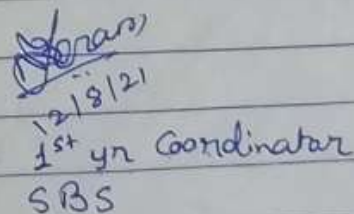 12/8/21
1st yr Coordinator
SBS